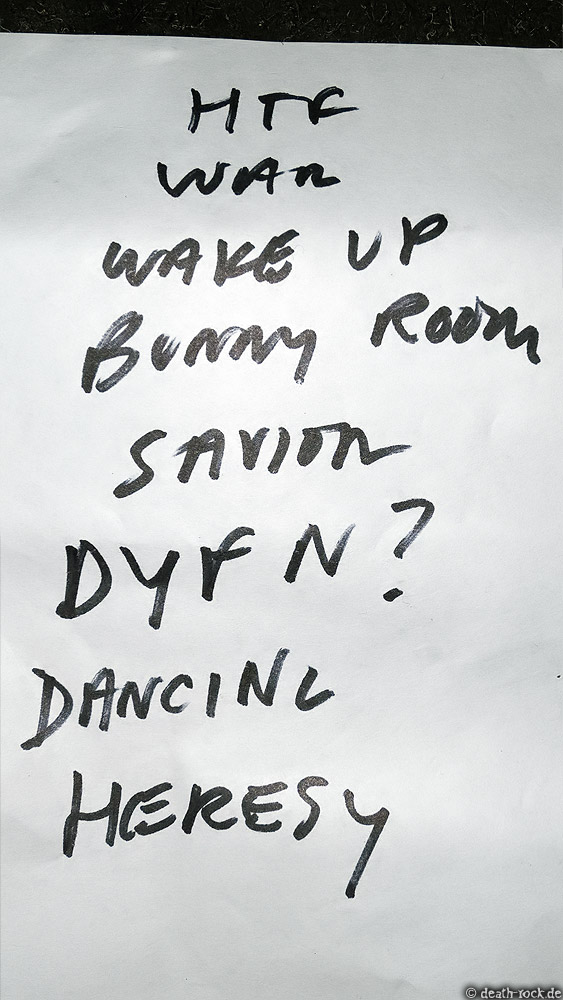 HTF
WAR
WAKE UP
BUNNY ROOM
SAVIOR
DYFN?
DANCING
HERESY
© death-rock.de